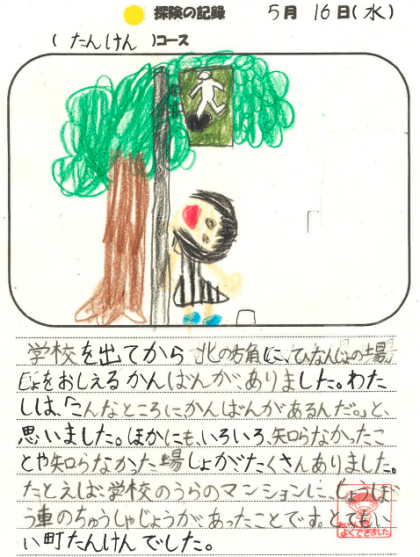 探険の記録　5月16日(水)
(たんけん)コース
学校を出てから北の方角に、ひなんじょの場
しょをおしえるかんばんがありました。わた
しは、「こんなところにかんばんがあるんだ。」と、
思いました。ほかにも、いろいろ、知らなかったこ
とや知らなかった場しょがたくさんありました。
たとえば学校のうらのマンションに、しょうぼ
う車のちゅうしゃじょうが、あったことです。とても、い
い町たんけんでした。
よくできました